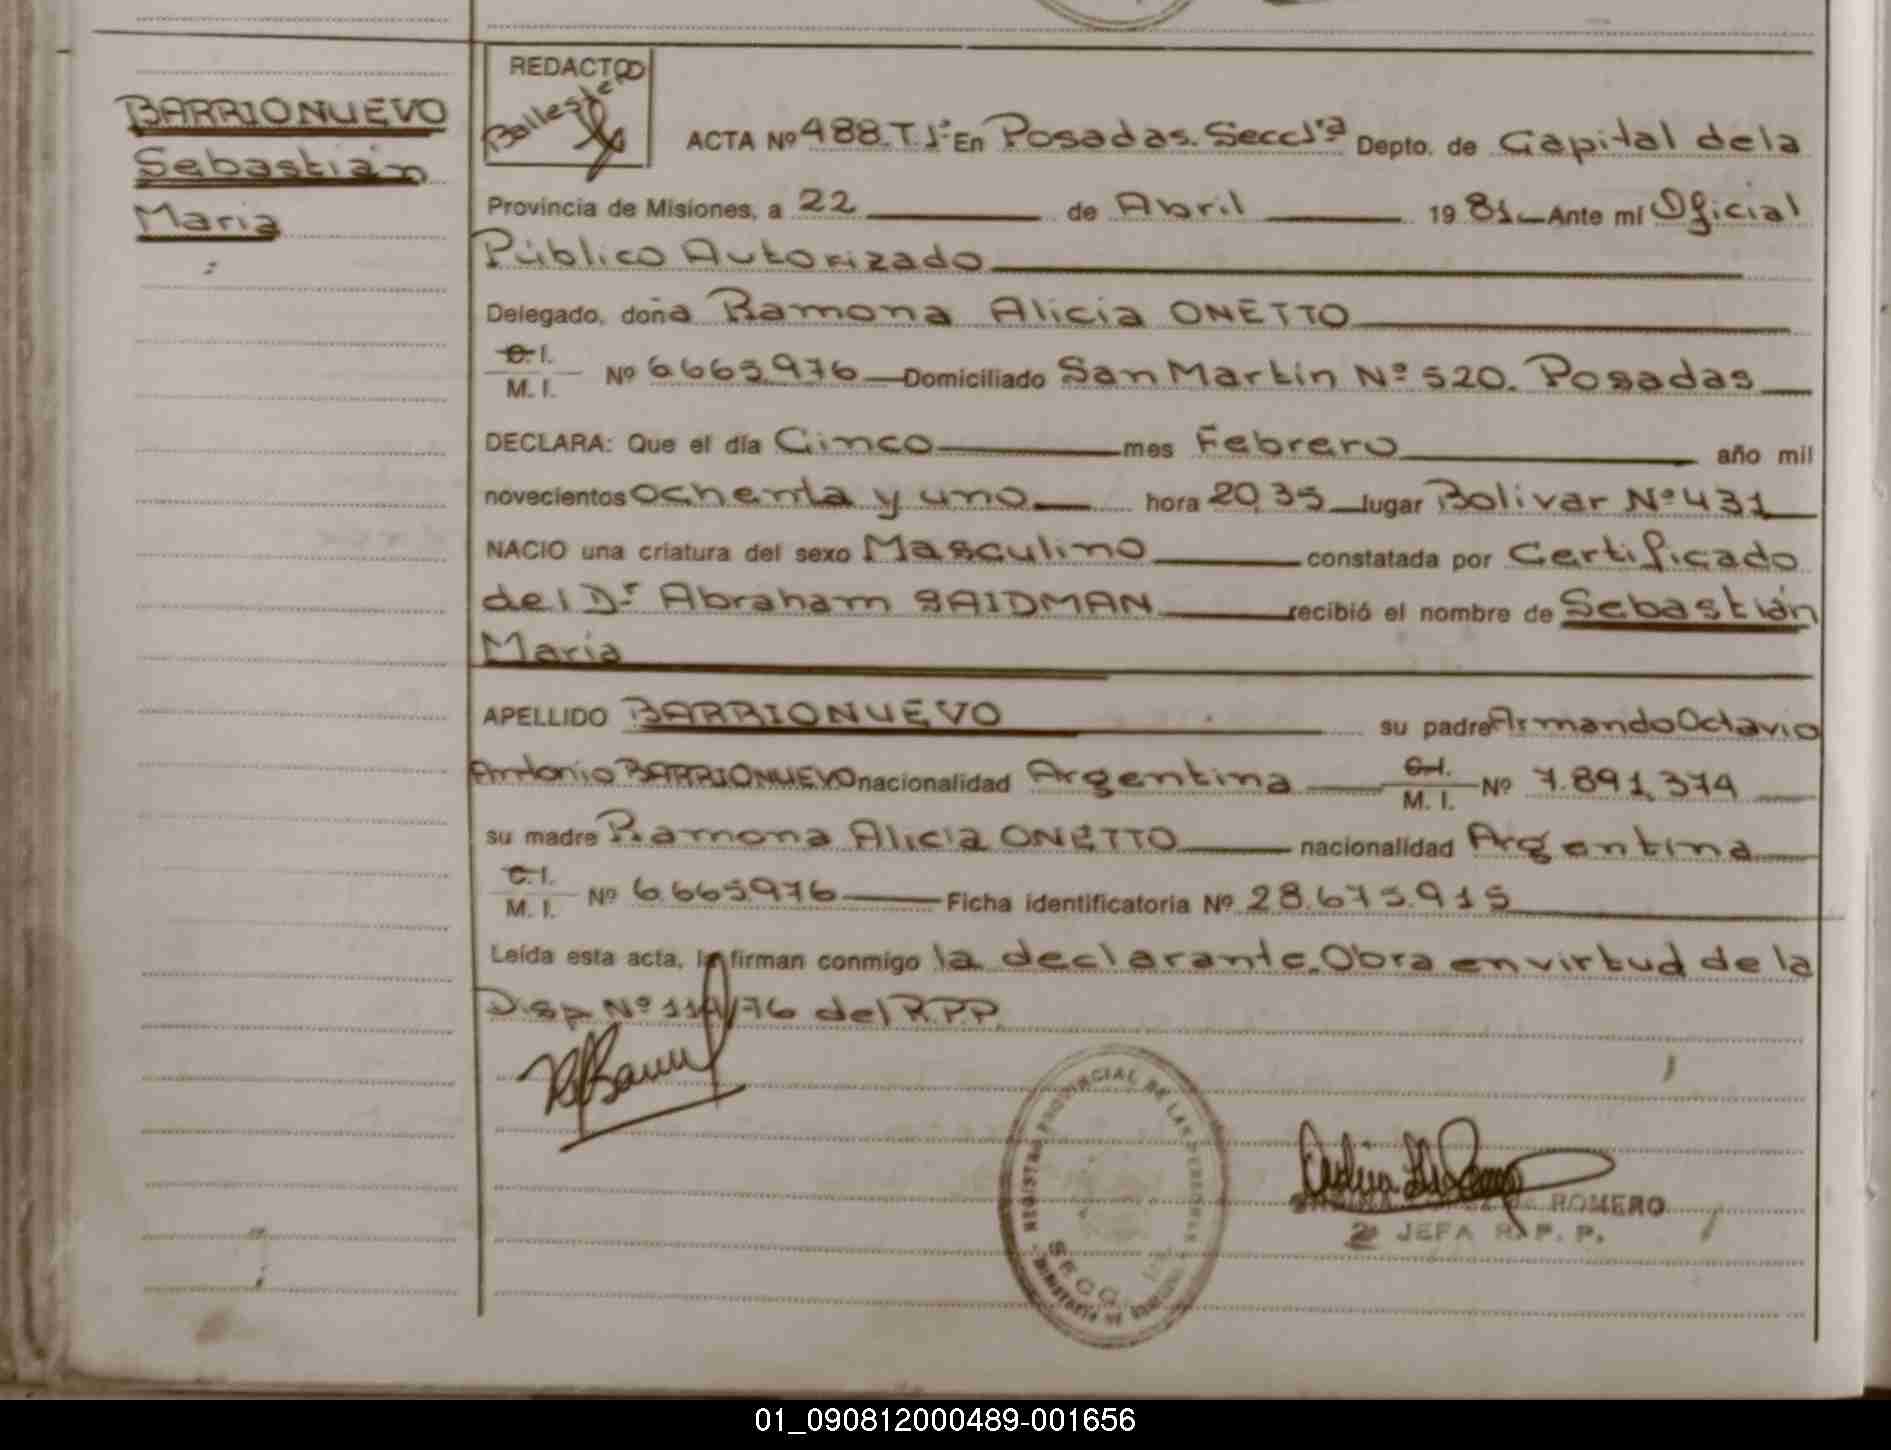 BARRIONUEVO
Sebastián
Maria
REDACTO
Ballestero
ACTA Nº 488.T.1º En Posadas. Secc 1ra Depto. de Capital dela
Provincia de Misiones, a 22 de Abril 1981 Ante mí Oficial
Público Autorizado
Delegado, doña Ramona Alicia ONETTO
C. I.
M. I. Nº 6.665.976 Domiciliado San Martín Nº 520. Posadas
DECLARA: Que el día Cinco mes Febrero año mil
novecientos ochenta y uno hora 20,35 lugar Bolivar Nº 431
NACIO una criatura del sexo Masculino constatada por Certificado
del Dr Abraham SAIDMAN recibió el nombre de Sebastián
Maria
APELLIDO BARRIONUEVO su padre Armando Octavio
Antonio BARRIONUEVO nacionalidad Argentina C.I. M. I. Nº 7.891.374
su madre Ramona Alicia ONETTO nacionalidad Argentina
C. I.
M. I. Nº 6.665.976 Ficha identificatoria Nº 28.675.915
Leída esta acta, la firman conmigo la declarante. Obra en virtud de la
Disp Nº 119/76 del R.P.P.
REGISTRO PROVINCIAL DE LAS PERSONAS
SECC.
ROMERO
2 JEFA R. P. P.
01_090812000489-001656